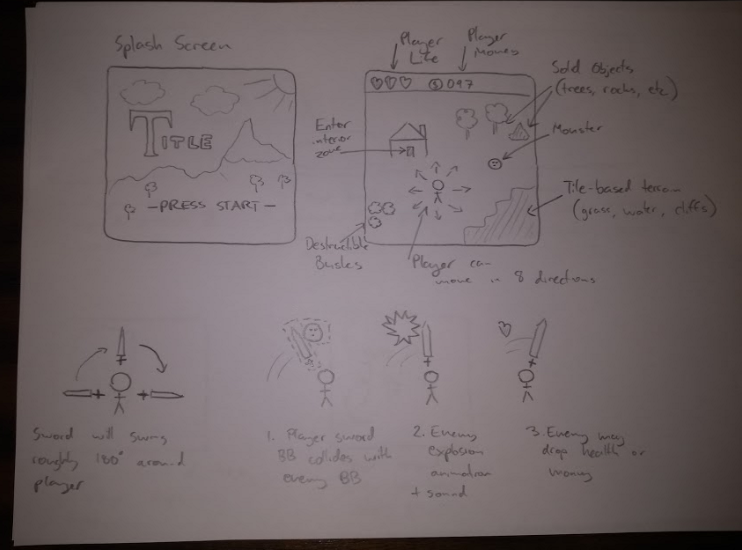 Splash Screen
TITLE
-PRESS START-
Player
Life
Player
Money
$ 097
Solid Objects
(trees, rocks, etc)
Enter
interior
zone
Monster
Tile-based terrain
(grass, water, cliffs)
Destructible
Bushes
Player can
move in 8 directions
Sword will swing
roughly 180° around
player
1. Player sword
BB collides with
enemy BB
2. Enemy
explosion
animation
+ sound
3. Enemy may
drop health or
money